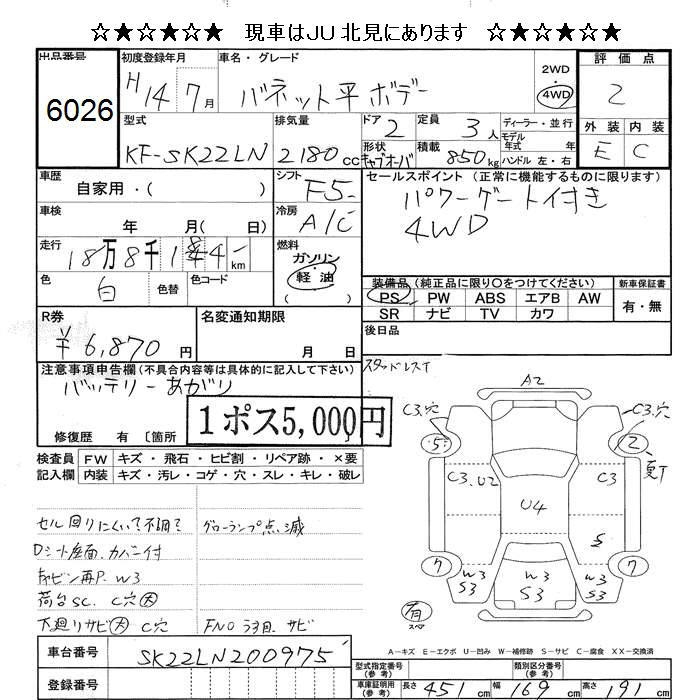 ☆★☆★☆★ 現車はJU北見にあります ☆★☆★☆★
出品番号 初度登録年月 車名・グレード 評価点
6026 H14 7月 バネット平ボデー 2WD 4WD 2
型式 排気量 ドア 定員 ディーラー・並行 外装 内装
KF-SK22LN 2180cc 2 3人 モデル年式 年 E C
形状 キャブオーバ 積載 850kg ハンドル 左・右
車歴 シフト セールスポイント(正常に機能するものに限ります)
自家用・( ) F5 パワーゲート付き
車検 冷房 4WD
年 月( 日) A/C
走行 燃料
18万8千1 4 km ガソリン・軽油
( )
色 色替 色コード 装備品(純正品に限り○をつけてください) 新車保証書
白 PS PW ABS エアB AW 有・無
SR ナビ TV カワ
R券 名変通知期限 後日品
¥6,870円 月 日
注意事項申告欄(不具合内容等は具体的に記入して下さい) スタッドレス
バッテリーあがり
1ポス5,000円
修復歴 有 〔箇所
検査員記入欄 FW キズ・飛石・ヒビ割・リペア跡・×要
内装 キズ・汚レ・コゲ・穴・スレ・キレ・破レ
A2
C3.穴 C3.穴
5 2
夏T
C3.U2 C3
U4
S
7 7
W3 S3 W3 S3 W3 S3
有 スペア
セル回りにくい?不調? グローランプ点滅
Dシート座面.カバー付
キャビン再P. W3
荷台SC. C穴大
下廻りサビ大 C穴 FNO うす目.サビ
A-キズ E-エクボ U-凹み W-補修跡 S-サビ C-腐食 XX-交換済
車台番号 SK22LN200975
登録番号
型式指定番号(参考) 類別区分番号(参考)
車庫証明用(参考) 長さ 451cm 幅 169cm 高さ 191cm